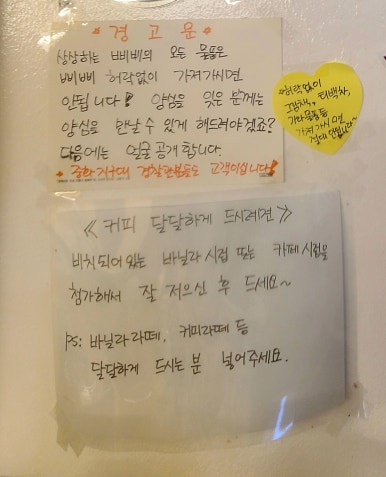 * 경 고 문 *
상상하는 삐삐의 모든 물품은
삐삐 허락없이 가져가시면
안됩니다! 양심을 잊은 분께는
양심을 만날 수 있게 해드려야겠죠?
다음에는 얼굴 공개합니다.
* 중화지구대 경찰관분들도 고객이십니다!
*허락없이
그림책, 티백차,
기타물품 등
가져가시면
절대 안됩니다~
《 커피 달달하게 드시려면 》
비치되어있는 바닐라 시럽 또는 카페 시럽을
첨가해서 잘 저으신 후 드세요~
PS: 바닐라라떼, 커피라떼 등
달달하게 드시는 분 넣어주세요.